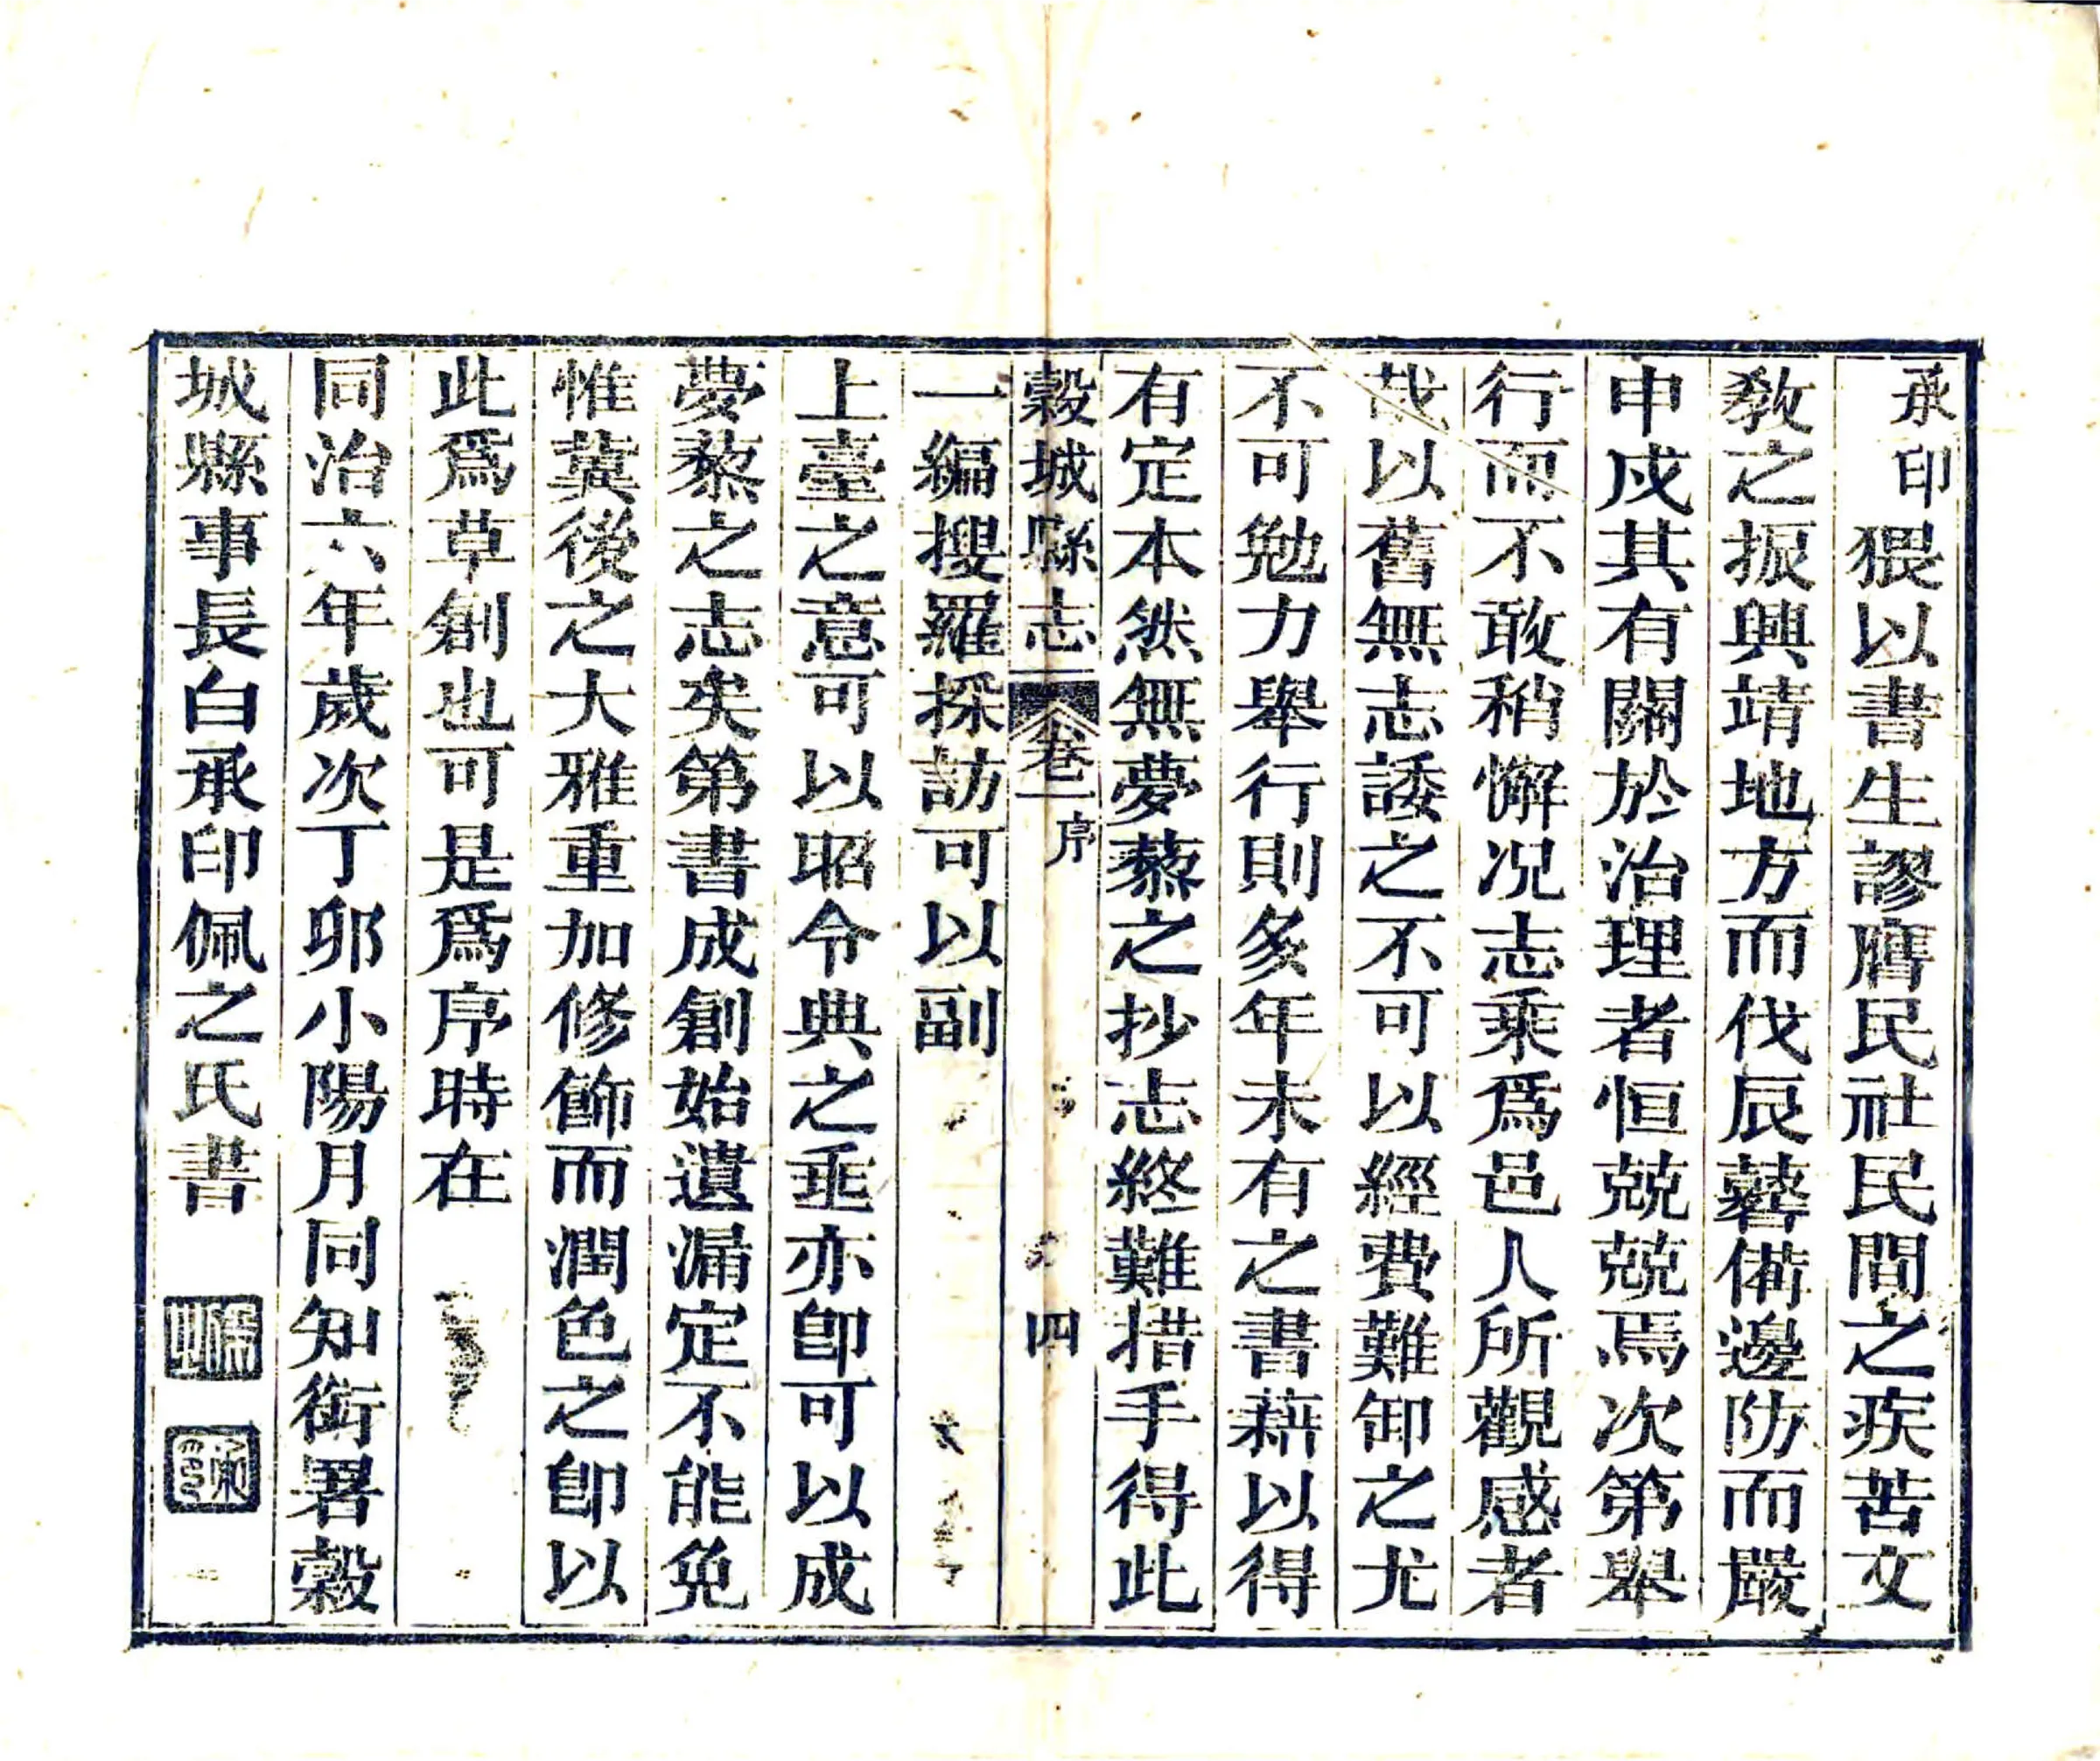 承印猥以書生謬膺民社民間之疾苦文
敎之振興靖地方而伐辰備邊防而嚴
申戍其有關於治理者恒兢兢焉次第舉
行而不敢稍懈况志乘爲邑人所觀感者
哉以舊無志諉之不可以經費難卸之尤
不可勉力舉行則多年未有之書藉以得
有定本然無夢藜之抄志終難措手得此
穀城縣志 卷一 序 四
一編搜羅採訪可以副
上臺之意可以昭令典之垂亦卽可以成
夢藜之志矣第書成創始遺漏定不能免
惟冀後之大雅重加修飾而潤色之卽以
此爲草創也可是爲序時在
同治六年歲次丁卯小陽月同知銜署穀
城縣事長白承印佩之氏書